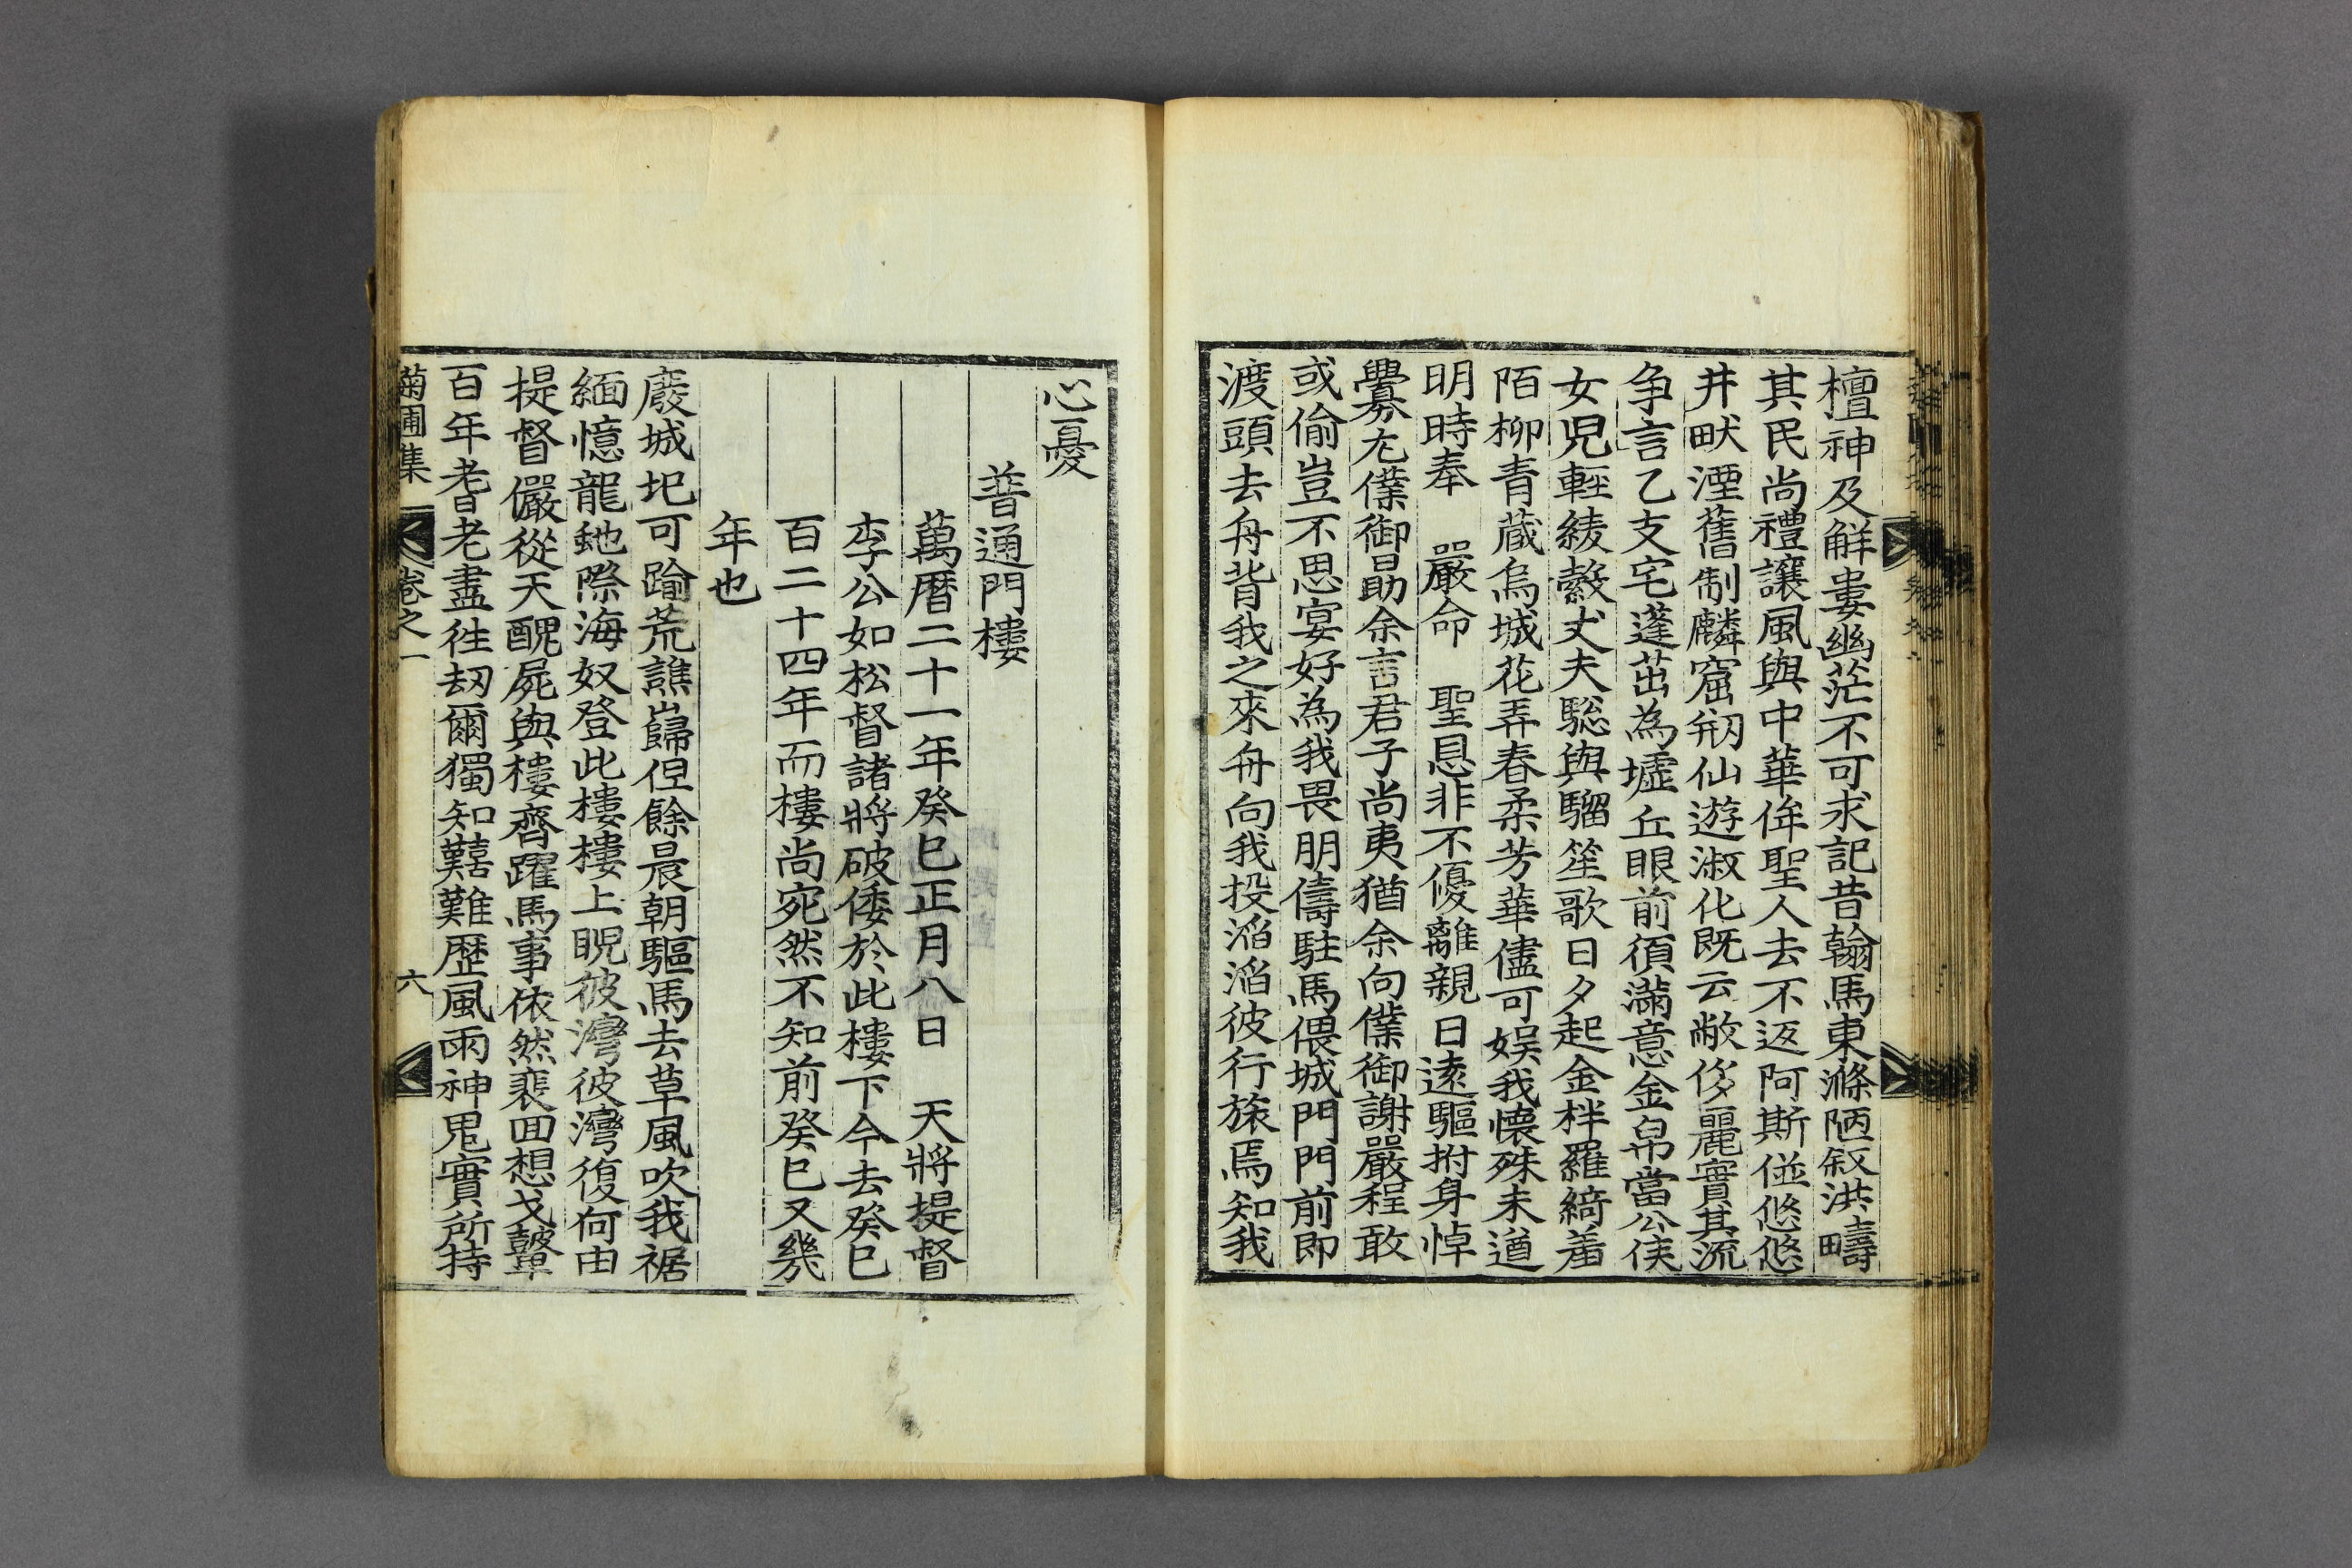 檀神及解婁幽茫不可求記昔翰馬東滌陋叙洪疇
其民尚禮讓風與中華侔聖人去不返阿斯徙悠悠
井畎湮舊制麟窟剏仙遊淑化既云敝侈麗實其流
争言乙支宅蓬茁為墟丘眼前須滿意金帛當公侯
女児輕綾縠丈夫驄與騮笙歌日夕起金柈羅綺羞
陌柳青蔵烏城花弄春柔芳華儘可娱我懐殊未遒
明時奉 嚴命 聖恩非不優離親日逺驅拊身悼
釁募尢僕御勗余言君子尚夷猶余向僕御謝嚴程敢
或偷豈不思宴好為我畏朋儔駐馬偎城門門前即
渡頭去舟背我之來舟向我投滔滔彼行旅焉知我
心憂
普通門樓
萬曆二十一年癸巳正月八日 天將提督
李公如松督諸將破倭於此樓下今去癸巳
百二十四年而樓尚宛然不知前癸巳又幾
年也
廢城圯可踰荒譙巋但餘晨朝驅馬去草風吹我裾
緬憶龍虵際海奴登此樓樓上睨彼灣彼灣復何由
提督儼從天醜屍與樓齊躍馬事依然裴回想戈鼙
百年耆老盡徃刼爾獨知囏難歷風雨神鬼實所持
菊圃集 卷之一 六